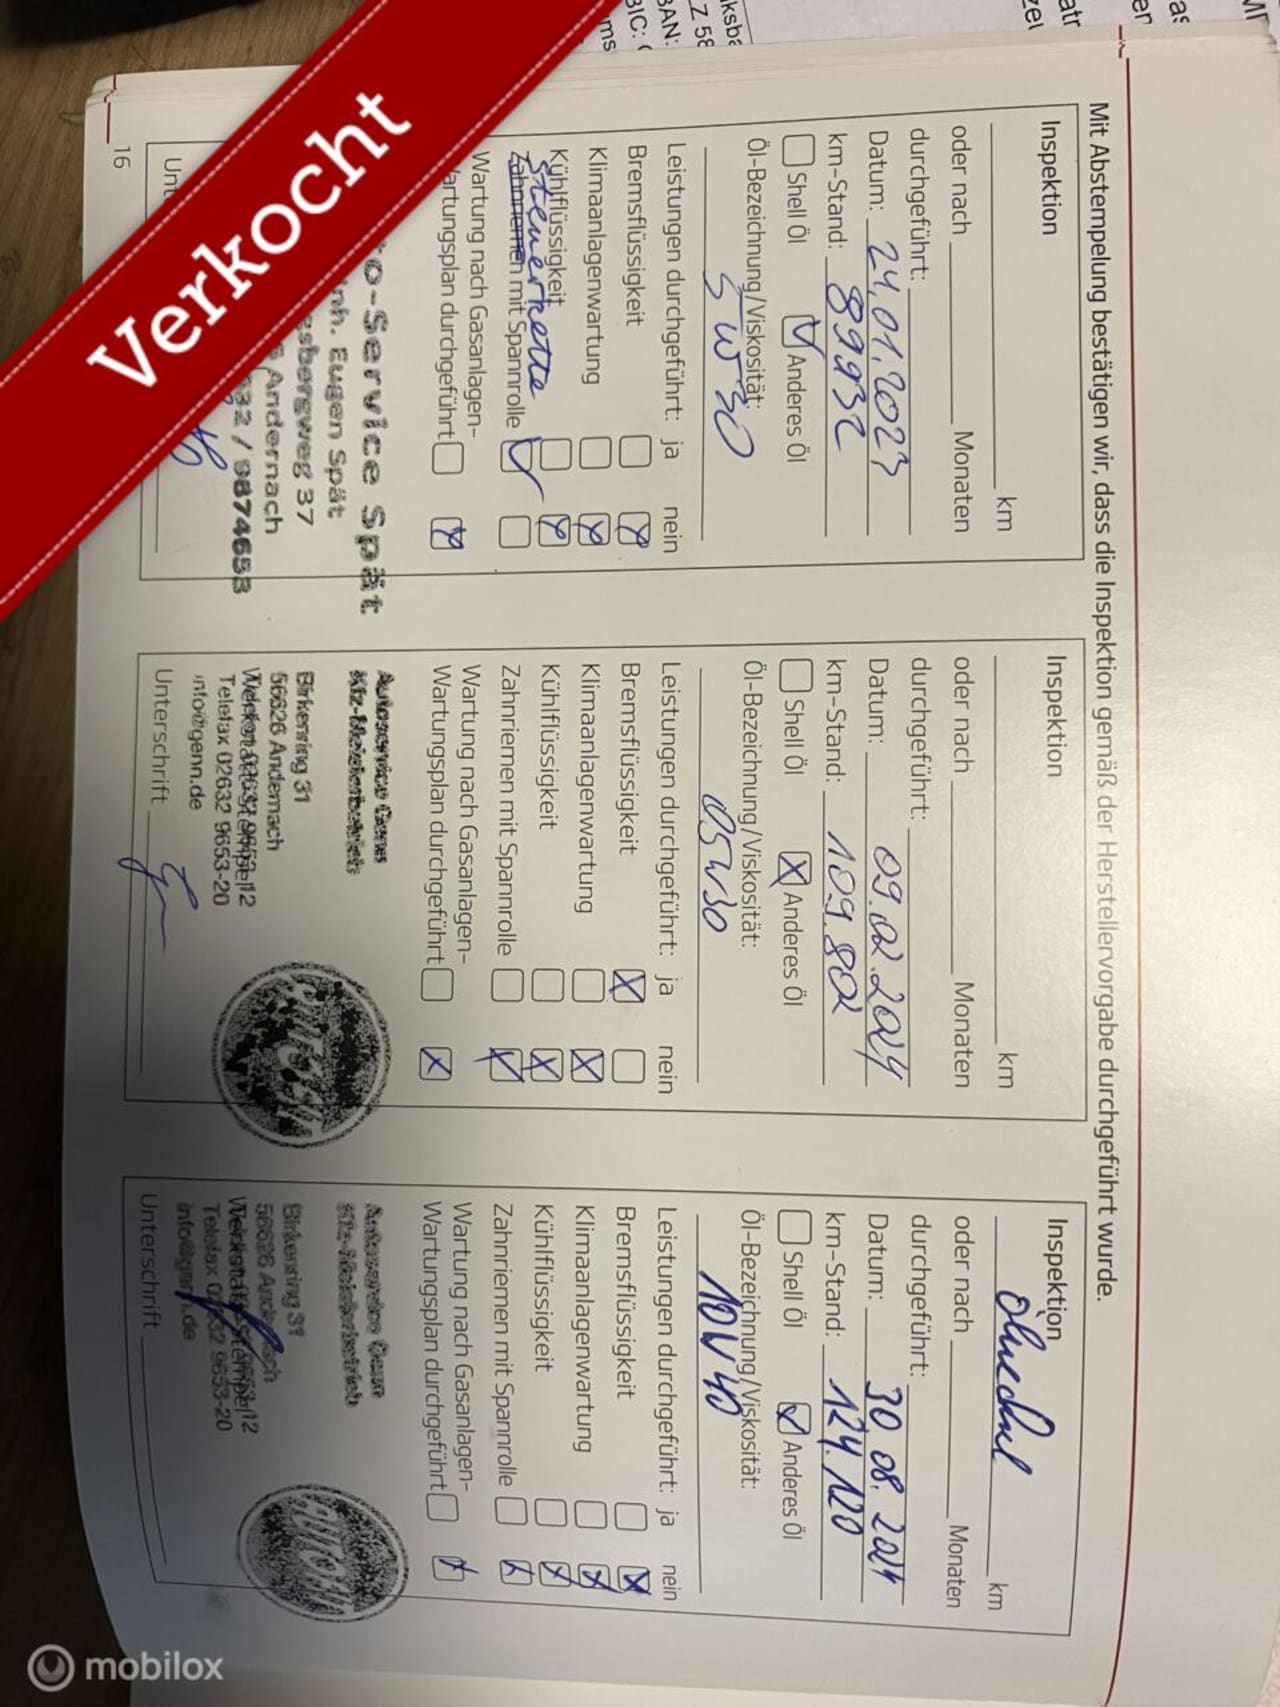 Verkocht
Mit Abstempelung bestätigen wir, dass die Inspektion gemäß der Herstellervorgabe durchgeführt wurde.
Inspektion
km
oder nach Monaten
durchgeführt:
Datum: 24.01.2023
km-Stand: 89932
Shell Öl Anderes Öl
Öl-Bezeichnung/Viskosität:
5W30
Leistungen durchgeführt: ja nein
Bremsflüssigkeit
Klimaanlagenwartung
Kühlflüssigkeit
Steuerkette
Zahnriemen mit Spannrolle
Wartung nach Gasanlagen-
Wartungsplan durchgeführt
to-Service Spät
nh. Eugen Spät
esbergsweg 37
Andernach
632 / 9874653
Unt
16
Inspektion
km
oder nach Monaten
durchgeführt:
Datum: 09.02.2024
km-Stand: 109.802
Shell Öl Anderes Öl
Öl-Bezeichnung/Viskosität:
05W30
Leistungen durchgeführt: ja nein
Bremsflüssigkeit
Klimaanlagenwartung
Kühlflüssigkeit
Zahnriemen mit Spannrolle
Wartung nach Gasanlagen-
Wartungsplan durchgeführt
Autoservice Genn
Kfz-Meisterbetrieb
Birkenring 31
56626 Andernach
Telefax 02632 9653-20
info@genn.de
Unterschrift
Inspektion
Ölwechsel km
oder nach Monaten
durchgeführt:
Datum: 30.08.2024
km-Stand: 124.120
Shell Öl Anderes Öl
Öl-Bezeichnung/Viskosität:
10W40
Leistungen durchgeführt: ja nein
Bremsflüssigkeit
Klimaanlagenwartung
Kühlflüssigkeit
Zahnriemen mit Spannrolle
Wartung nach Gasanlagen-
Wartungsplan durchgeführt
Autoservice Genn
Kfz-Meisterbetrieb
Birkenring 31
56626
Telefax 9653-20
Unterschrift
mobilox